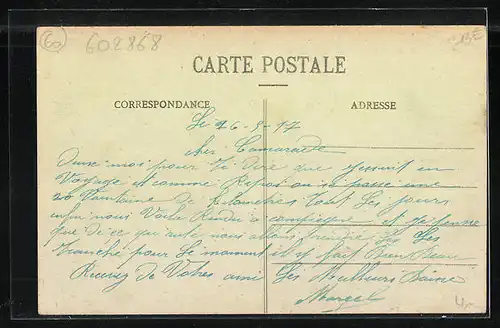 60
602868
CARTE POSTALE
CORRESPONDANCE
ADRESSE
Le 26-9-17
cher Camarade
Dune moi pour Te Dire que je suit en
Voyage et comme Repos on se passe une
20 Vantaine De Kilometres tout Les jours
enfin nous Voila Rendu a compiegne et je pense
que de ce qui nous allons prendre Les
Tranché pour Le moment il y fait Bien Beau
Recevez De Votres ami Les Meilleurs
Marcel